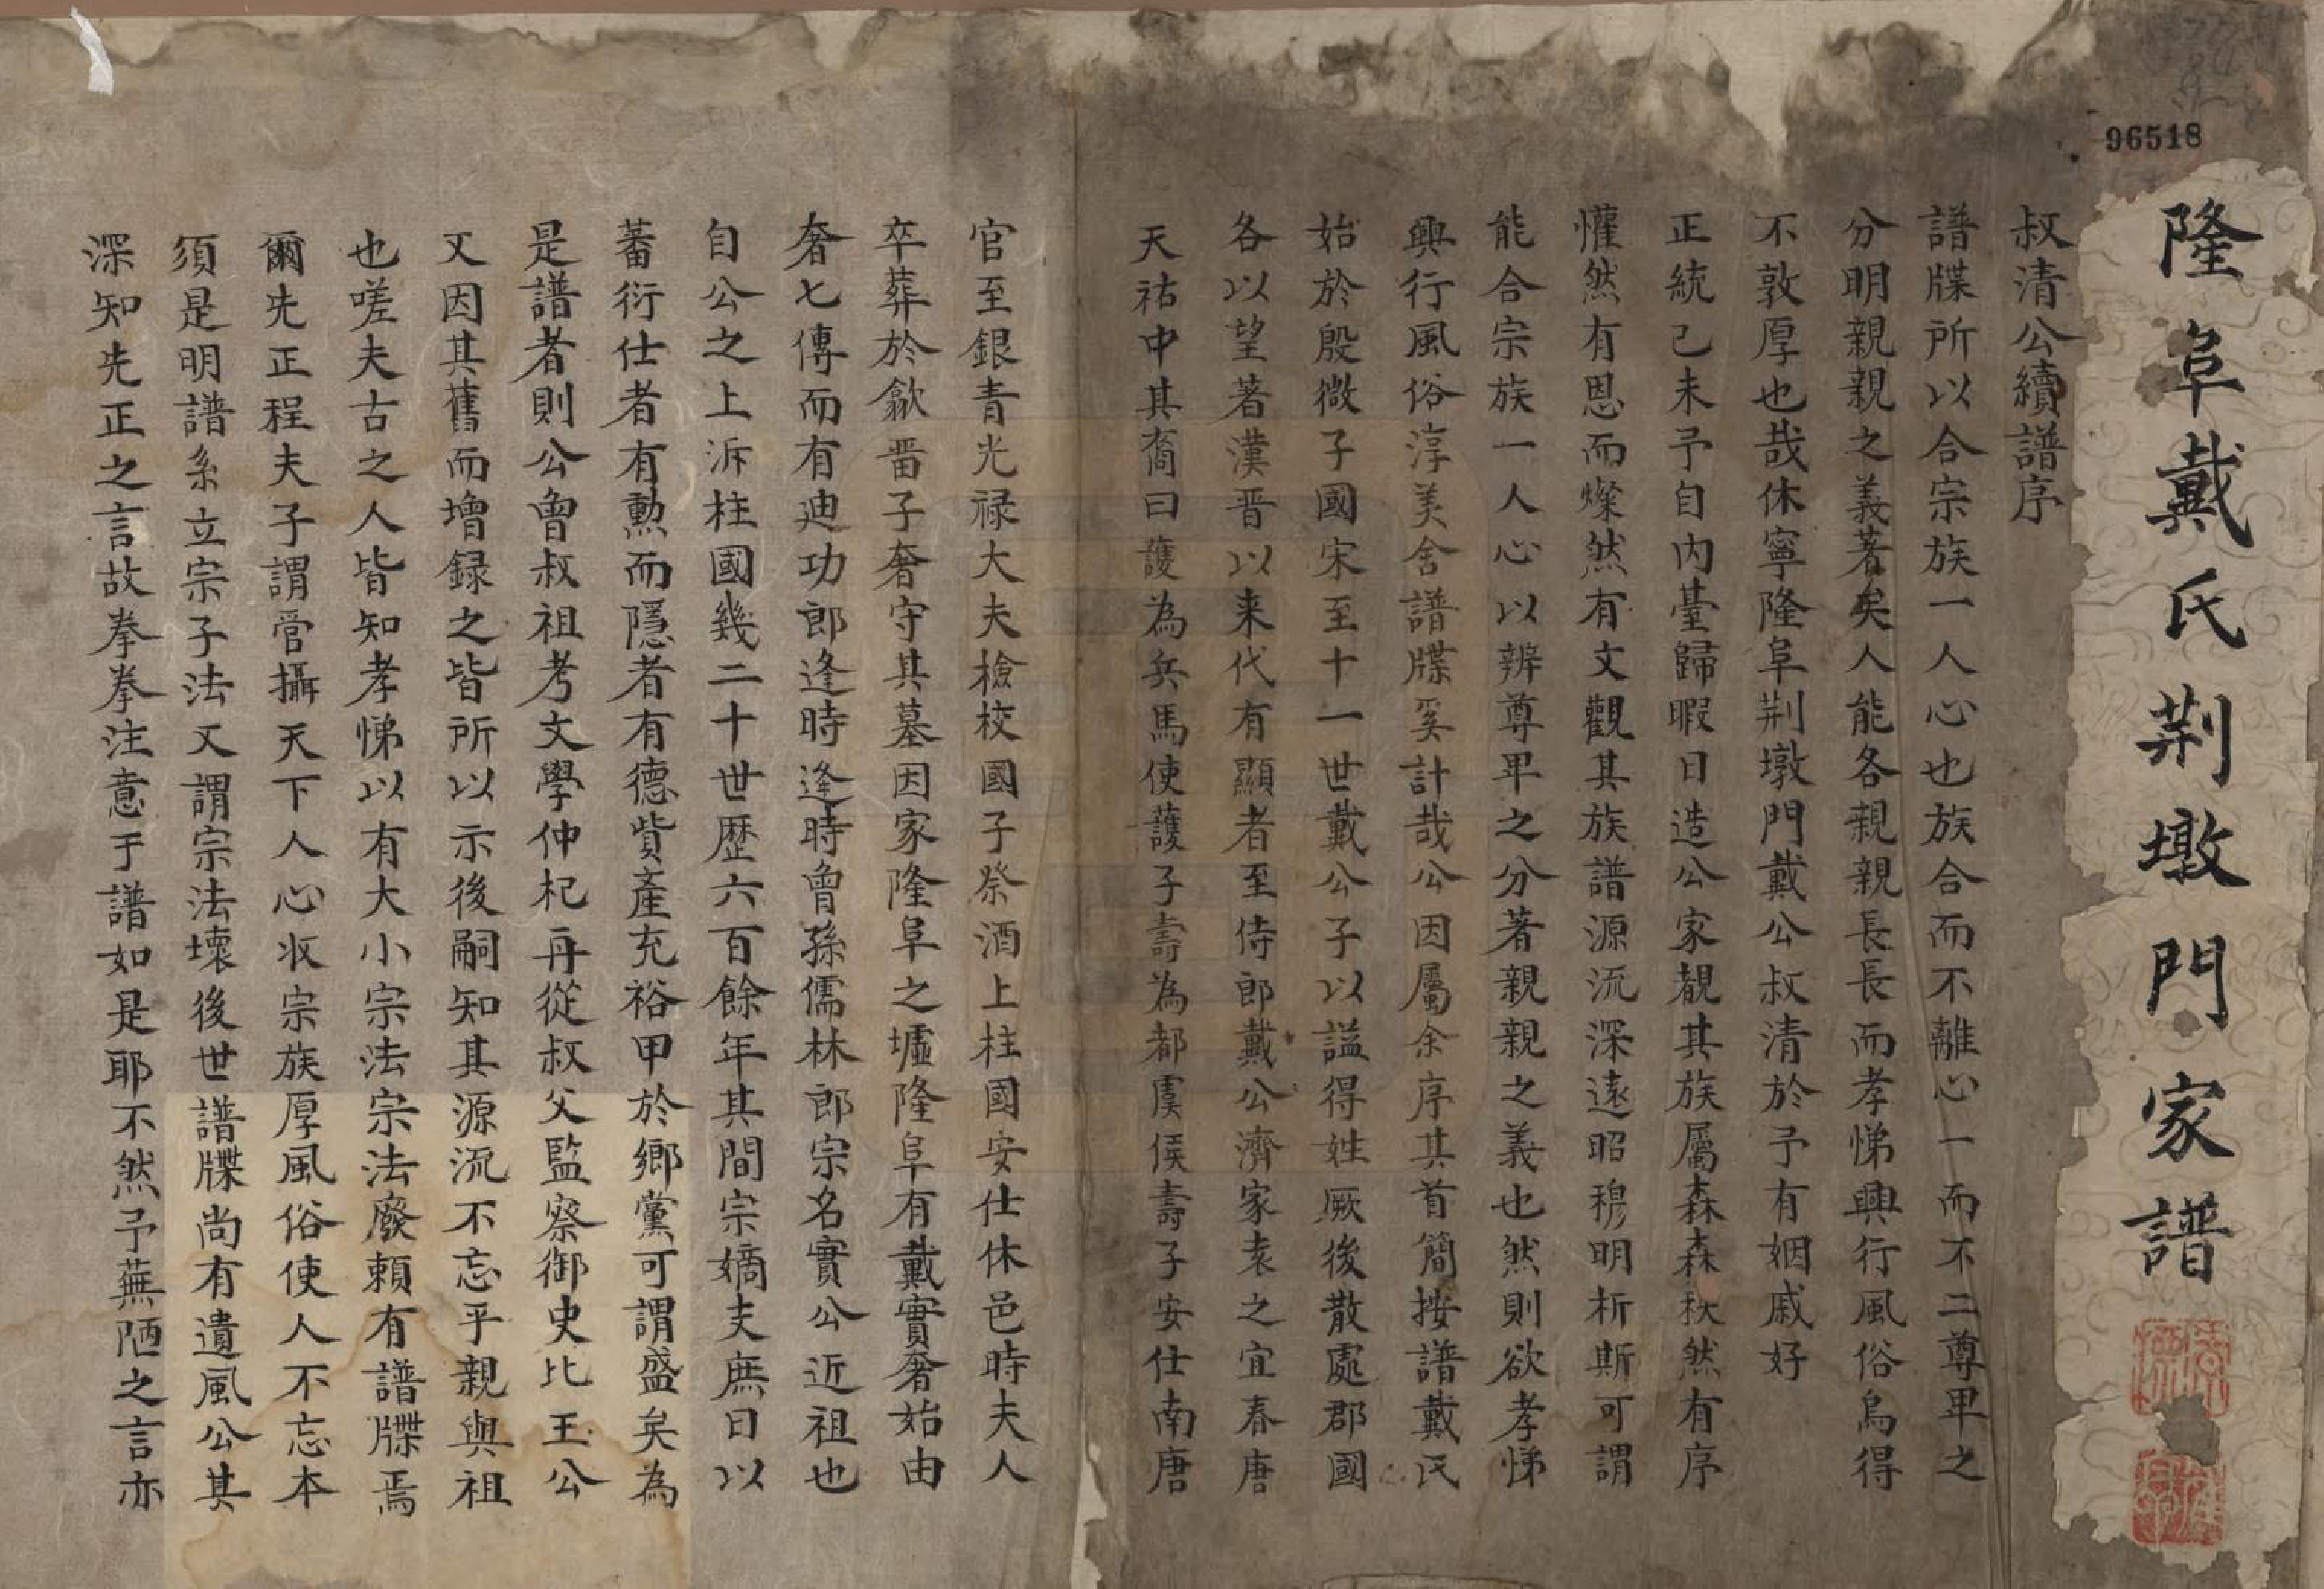 96518
隆阜戴氏荆墩門家譜
叔清公續譜序
譜牒所以合宗族一人心也族合而不離心一而不二尊卑之
分明親親之義著矣人能各親親長長而孝悌興行風俗烏得
不敦厚也哉休寧隆阜荆墩門戴公叔清於予有姻戚好
正統己未予自内臺歸暇日造公家覩其族屬森森秩然有序
懽然有恩而燦然有文觀其族譜源流深遠昭穆明析斯可謂
能合宗族一人心以辨尊卑之分著親親之義也然則欲孝悌
興行風俗淳美舍譜牒奚計哉公因屬余序其首簡按譜戴氏
始於殷微子國宋至十一世戴公子以謚得姓厥後散處郡國
各以望著漢晋以来代有顯者至侍郎戴公濟家袁之宜春唐
天祐中其裔曰護為兵馬使護子壽為都虞侯壽子安仕南唐
官至銀青光禄大夫檢校國子祭酒上柱國安仕休邑時夫人
卒葬於歙畨子奢守其墓因家隆阜之墟隆阜有戴實奢始由
奢七傳而有迪功郎逢時逢時曾孫儒林郎宗名實公近祖也
自公之上泝柱國幾二十世歷六百餘年其間宗嫡支庶日以
蕃衍仕者有勲而隱者有德貲產充裕甲於鄉黨可謂盛矣為
是譜者則公曾叔祖考文學仲杞再從叔父監察御史比王公
又因其舊而增録之皆所以示後嗣知其源流不忘乎親與祖
也嗟夫古之人皆知孝悌以有大小宗法宗法廢頼有譜牒焉
爾先正程夫子謂管攝天下人心收宗族厚風俗使人不忘本
須是明譜系立宗子法又謂宗法壞後世譜牒尚有遺風公其
深知先正之言故拳拳注意于譜如是耶不然予蕪陋之言亦